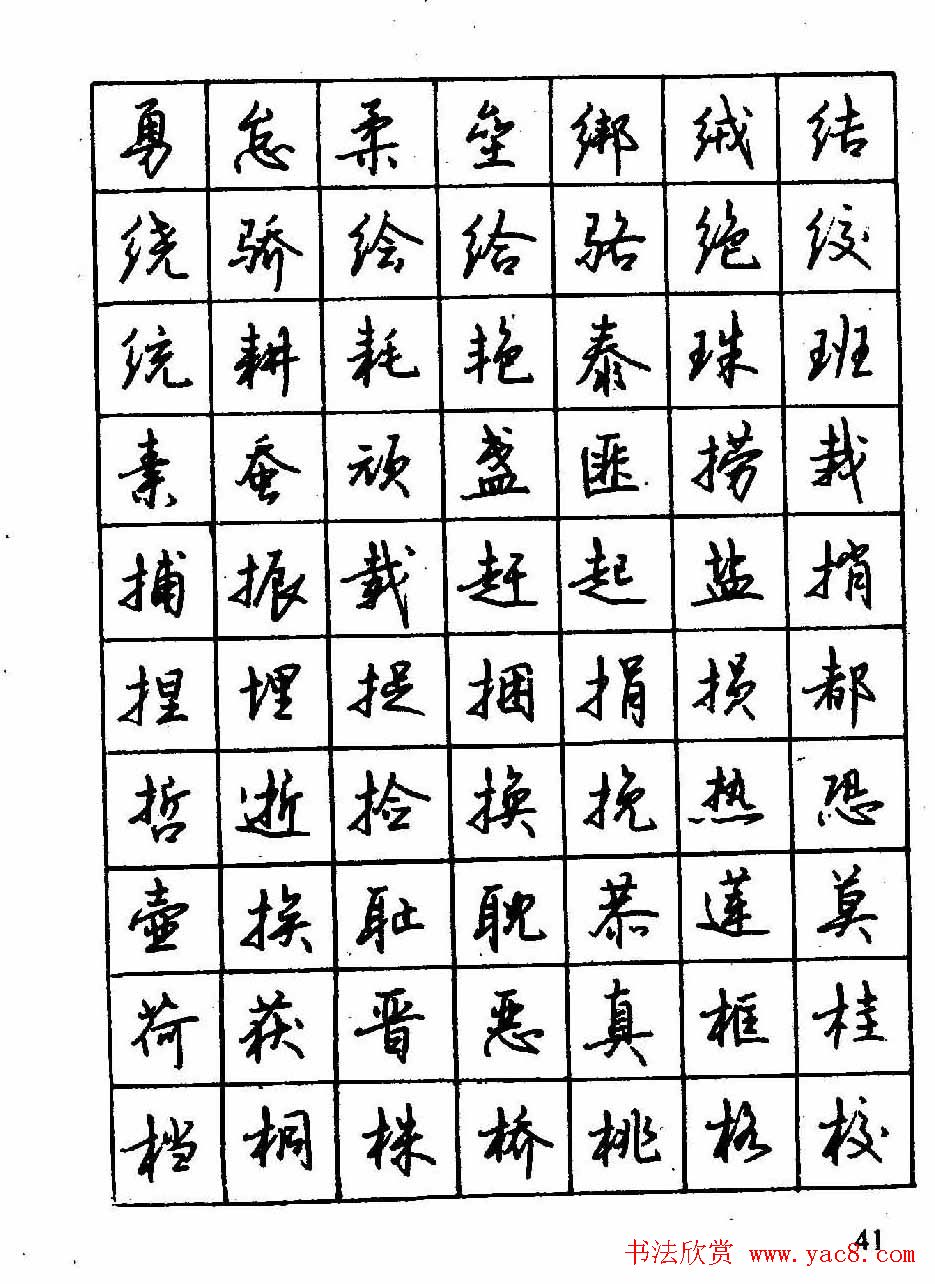 勇怠柔垒绑绒结
绕骄绘给骆绝绞
统耕耗艳泰珠班
素蚕顽盏匪捞栽
捕振载赶起盐捎
捏埋捉捆捐损都
哲逝捡换挽热恐
壶挨耻耽恭莲莫
荷获晋恶真框桂
档桐株桥桃格校
41
书法欣赏 www.yac8.com